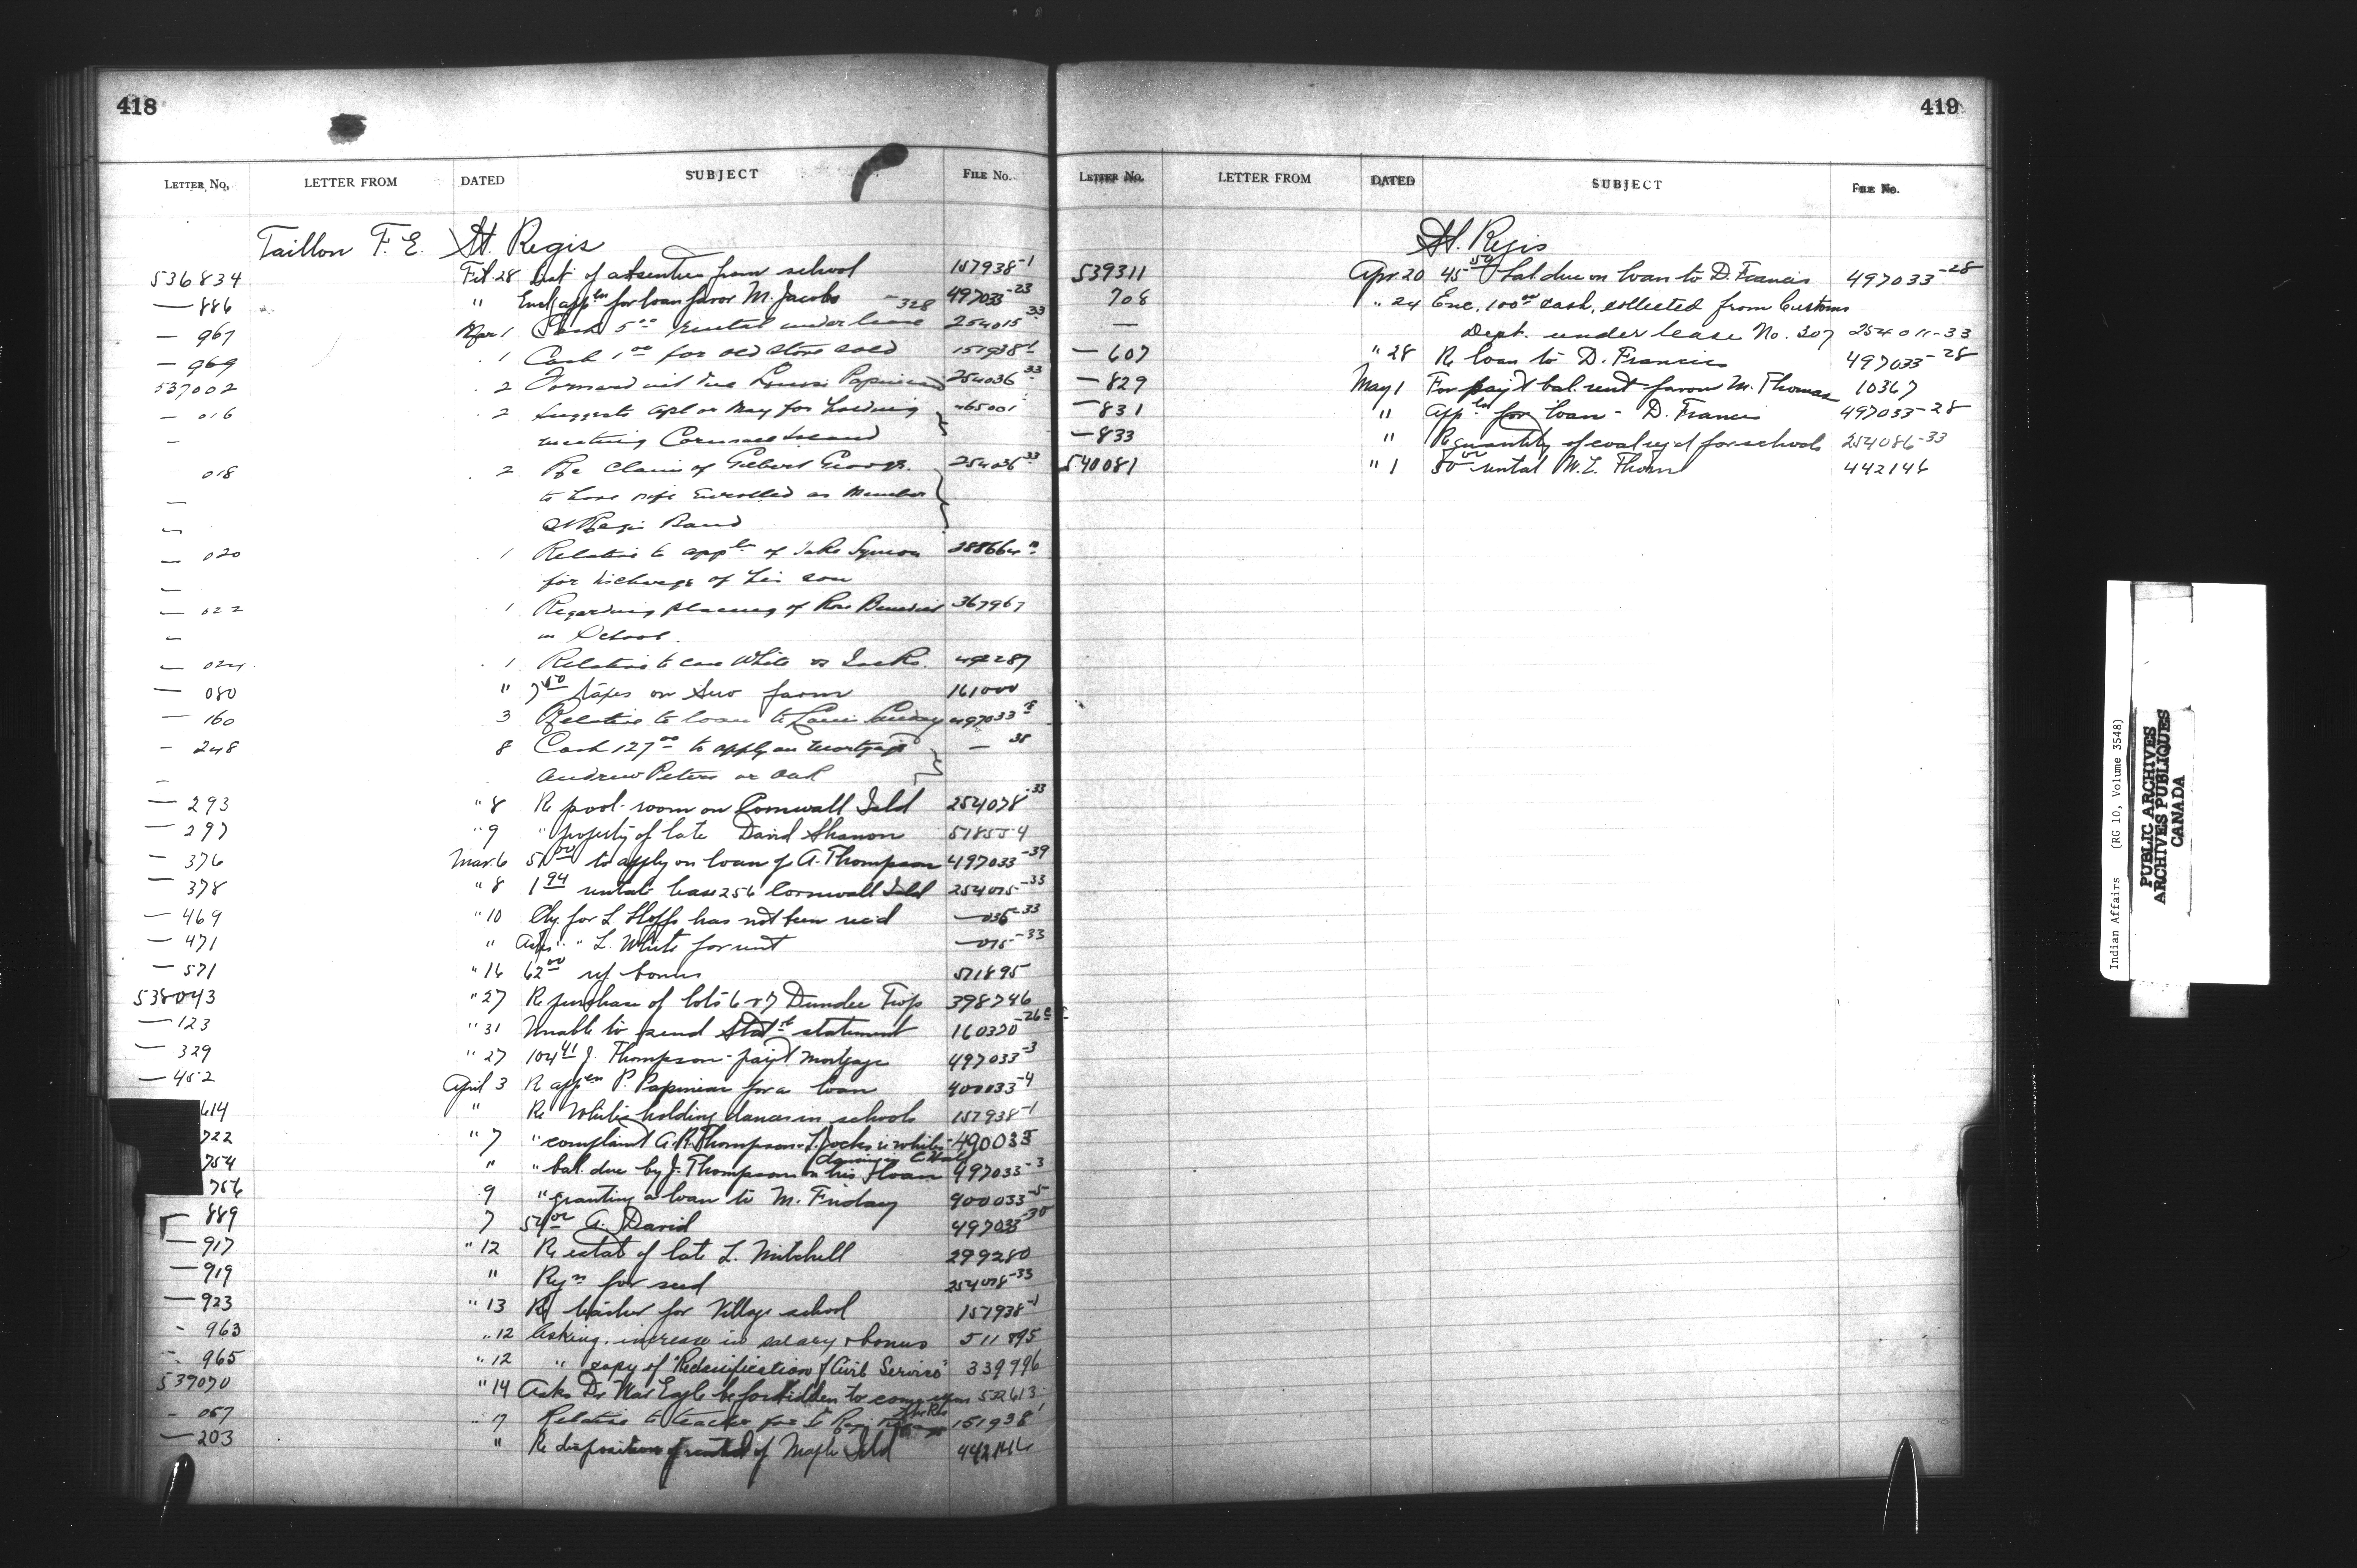 418
LETTER NO. LETTER FROM DATED SUBJECT FILE NO.
Taillon F. E. St. Regis
536834 Feb. 28 List of absentees from school 157938-1
— 886 " Encl. appln for loan favor M. Jacobs 497033-23
— 967 Mar 1 Cash 5.00 rental under lease - 328 254015-33
— 969 . 1 Cash 1.00 for old stove sold 157938-1
537002 . 2 Forward
- 016 2 Suggests Apl or May for holding 465001
- meeting
018 . 2 Re Claim of Gilbert George 254036-33
— to have wife Enrolled as Member
- St Regis Band
— 020 . 1 Relative to appln of Jake Symon
- for discharge of his son
— 022 1 Regarding placing of Rose Benedict 367967
- in School.
— 024 . 1 Relative to case White vs Jacks. 492287
— 080 " taxes on farm 161000
— 160 3 Relative to loan to 497033
— 248 8 Cash 127.00 to apply on mortgage — 38
- Andrew Peters
— 293 " 8 Re pool-room on Cornwall Isld 254078-33
— 297 " 9 " property of late David Shanon 518554
— 376 Mar. 6 51.00 to apply on loan of A. Thompson 497033-39
— 378 " 8 1.94 rental lease 256 Cornwall Isld 254015-33
— 469 " 10 Chq for L. has not been rec'd — 036-33
— 471 " Asks " L. White for rent — 015-33
— 571 " 16 62.00 bonus 571895
538043 " 27 Re purchase of lots 6 & 7 Dundee Twp 398746
— 123 " 31 Unable to send Stat statement 160320-26
— 329 " 27 104.41 J. Thompson - pay't mortgage 497033-3
— 452 April 3 Re appln P. Papineau for a loan 400033-4
614 " Re Whites holding dances in schools 157938-1
722 " 7 " complaint A. R. Thompson & L. Jocks re whites 490035
dancing in C. Hall
754 " " bal. due by J. Thompson on his loan 497033-3
756 9 " granting a loan to M. Friday 400033-5
889 7 A. David 497033-30
— 917 " 12 Re estate of late L. Mitchell 299280
— 919 " Rqn for seed 254078-33
— 923 " 13 Re teacher for Village school 157938-1
- 963 " 12 Asking increase in salary & bonus 511895
- 965 " 12 " copy of "Reclassification of Civil Service" 339996
539070 " 14 Asks Dr War Eagle be forbidden to come upon 522613
the Res
- 057 " 17 Relative to teacher for St Regis 157938-1
— 203 " Re disposition of rental of Maple Isld 442146
419
LETTER NO. LETTER FROM DATED SUBJECT FILE NO.
St. Regis
539311 Apr. 20 45.50 bal due on loan to D. Francis 497033-28
708 " 24 Enc. 100.00 cash, collected from Customs
— Dept. under lease No. 307 254011-33
— 607 " 28 Re loan to D. Francis 497033-28
— 829 May 1 For pay't bal. rent favour M. Thomas 10367
— 831 " Appln for loan - D. Francis 497033-28
— 833 " Re quantity of coal req'd for schools 254086-33
540081 " 1 50.00 rental W. L. Thom 442146
Indian Affairs (RG 10, Volume 3548)
PUBLIC ARCHIVES
ARCHIVES PUBLIQUES
CANADA